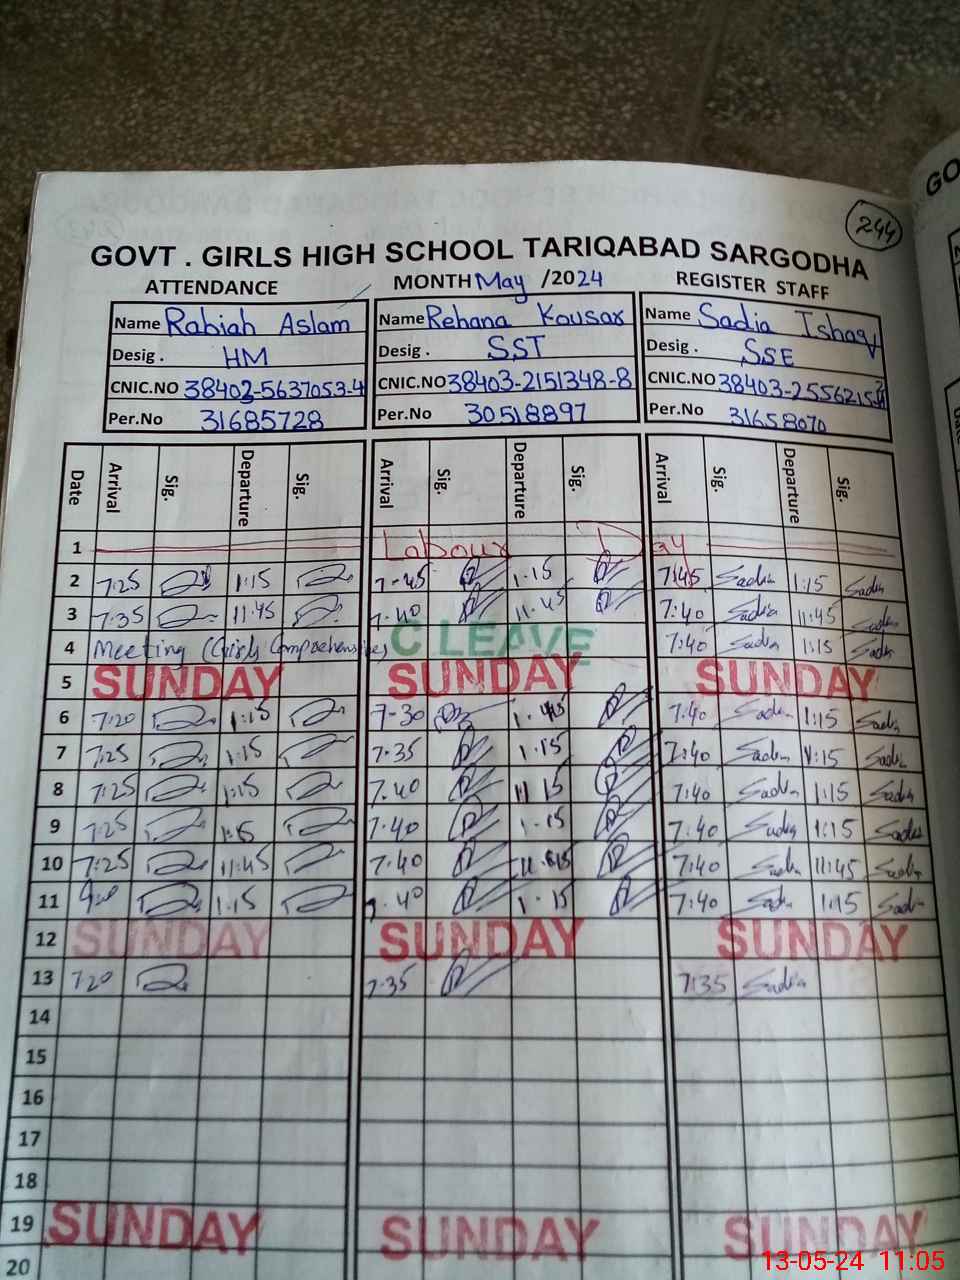 244
GOVT . GIRLS HIGH SCHOOL TARIQABAD SARGODHA
GO
ATTENDANCE MONTH May /2024 REGISTER STAFF
Name Rabiah Aslam Name Rehana Kousar Name Sadia Ishaq
Desig . HM Desig . SST Desig . SSE
CNIC.NO 38403-5637053-4 CNIC.NO 38403-2151348-8 CNIC.NO
Per.No 31685728 Per.No 30518897 Per.No 31658070
Date Arrival Sig. Departure Sig. Arrival Sig. Departure Sig. Arrival Sig. Departure Sig.
1 Labour Day
2 7:25 1:15 7-45 1-15 7:45 Sadia 1:15 Sadia
3 7:35 11:45 7-40 11-45 7:40 Sadia 11:45 Sadia
4 Meeting (Girls Comprehensive) C LEAVE 7:40 Sadia 1:15 Sadia
5 SUNDAY SUNDAY SUNDAY
6 7:20 1:15 7-30 7:40 Sadia 1:15 Sadia
7 7:25 1:15 7-35 1-15 7:40 Sadia 1:15 Sadia
8 7:25 1:15 7-40 7:40 Sadia 1:15 Sadia
9 7:25 7-40 1-15 7:40 Sadia 1:15 Sadia
10 7:25 11:45 7-40 7:40 Sadia 11:45 Sadia
11 1:15 7-40 1-15 7:40 Sadia 1:15 Sadia
12 SUNDAY SUNDAY SUNDAY
13 7:20 7-35 7:35 Sadia
14
15
16
17
18
19 SUNDAY SUNDAY SUNDAY
20
13-05-24 11:05